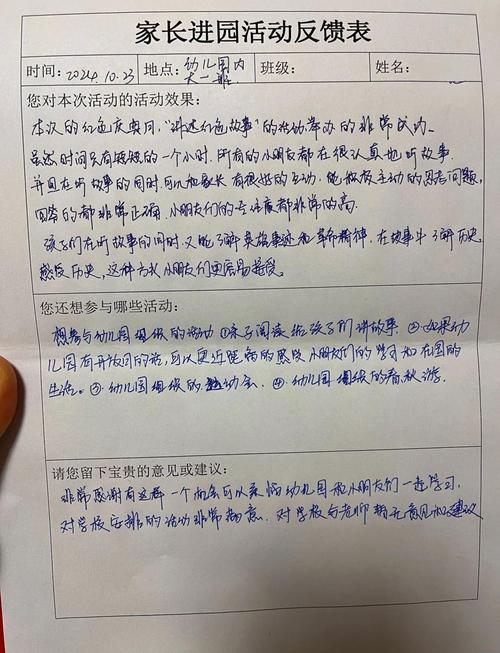 家长进园活动反馈表
时间：2024.10.23 地点：幼儿园内大一班 班级： 姓名：
您对本次活动的活动效果：
本次的红色庆典月，“讲述红色故事”的活动举办的非常成功。
虽然时间只有短短的一个小时，所有的小朋友都在很认真地听故事，
并且在听故事的同时，可以和家长有很好的互动，能积极主动的思考问题，
回答的都非常正确，小朋友们的专注度都非常的高。
孩子们在听故事的同时，又能了解英雄事迹和革命精神，在故事中了解历史，
感受历史，这种方式小朋友们更容易接受。
您还想参与哪些活动：
想参与幼儿园组织的活动 ①亲子阅读，给孩子们讲故事。②如果幼
儿园有开放日的话，可以更近距离的感受小朋友们的学习和在园的
生活。③幼儿园组织的运动会。④幼儿园组织的春、秋游。
请您留下宝贵的意见或建议：
非常感谢有这样一个机会可以来幼儿园和小朋友们一起学习，
对学校安排的活动非常满意，对学校与老师暂无意见和建议